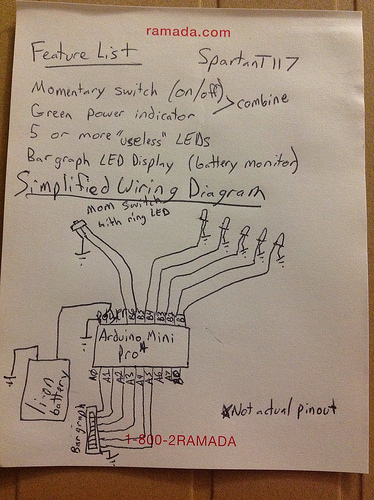 ramada.com
Feature List
SpartanT117
Momentary switch (on/off)
Green power indicator
> combine
5 or more "useless" LEDs
Bar graph LED Display (battery monitor)
Simplified Wiring Diagram
Mom switch
with ring LED
power
Arduino Mini
Pro*
A0 A1 A2 A3 A4 A5 A6 A7
lion
battery
Bar graph
*Not actual pinout
1-800-2RAMADA